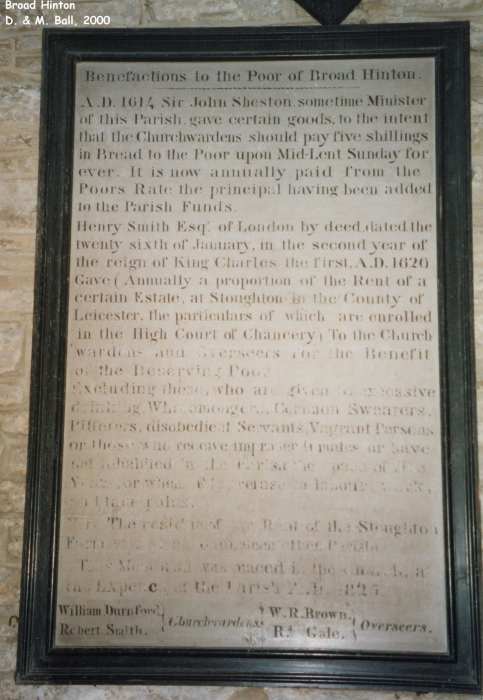 Broad Hinton
D. & M. Ball, 2000
Benefactions to the Poor of Broad Hinton.
A.D. 1614 Sir John Sheston, sometime Minister
of this Parish, gave certain goods, to the intent
that the Churchwardens should pay five shillings
in Bread to the Poor upon Mid-Lent Sunday for
ever. It is now annually paid from the
Poors Rate the principal having been added
to the Parish Funds.
Henry Smith Esqr. of London by deed, dated the
twenty sixth of January, in the second year of
the reign of King Charles the first, A.D. 1626
Gave ( Annually a proportion of the Rent of a
certain Estate, at Stoughton in the County of
Leicester, the particulars of which are enrolled
in the High Court of Chancery ) To the Church
wardens and Overseers For the Benefit
of the Deserving Poor
Excluding these, who are given to excessive
drinking, Whoremongers, Common Swearers,
Pilferers, disobedient Servants, Vagrant Persons
or those who receive
not inhabited in the Parish the space of
Years, or when refuse to labour, work,
The of Rent of the Stoughton
other Parish
This was placed in the Church, at
the Expence of the Parish A.D. 1825.
William Durnford, Churchwardens W.R. Brown, Overseers.
Robert Smith. Rt. Gale.